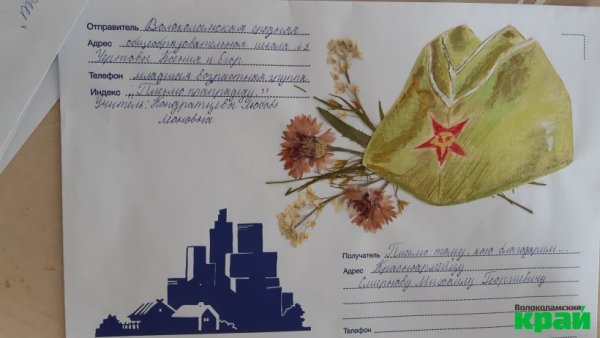 Отправитель Волоколамская средняя
Адрес общеобразовательная школа
Уртовы Ксения и Егор
Телефон младшая возрастная группа
Индекс „Письмо прапрадеду"
Учитель: Кондратцева Любовь
Леоновна
Получатель Письмо тому, кого благодарим...
Адрес Красноармейцу
Смирнову Михаилу Георгиевичу
Телефон
Волоколамский
край